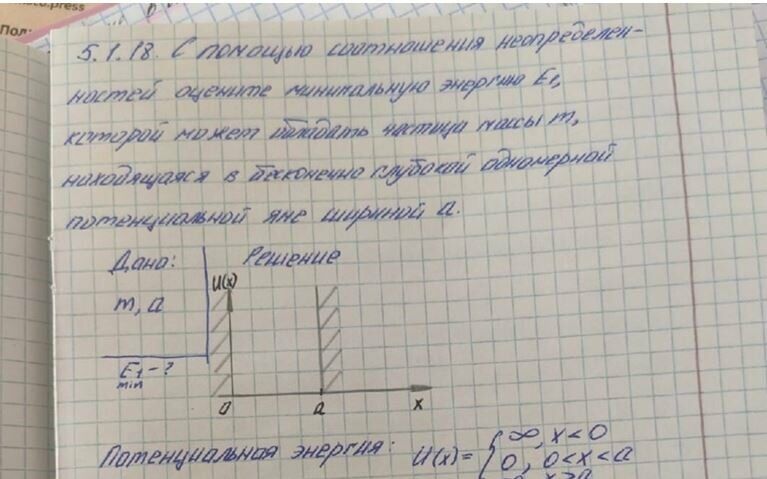 sco.press
Пол
5.1.18. С помощью соотношения неопределен-
ностей оцените минимальную энергию E₁,
которой может обладать частица массы m,
находящаяся в бесконечно глубокой одномерной
потенциальной яме шириной a.
Дано: Решение
m, a
E₁ - ?
min
U(x)
0 a x
Потенциальная энергия: U(x) = { ∞, x < 0
0, 0 < x < a
x > a